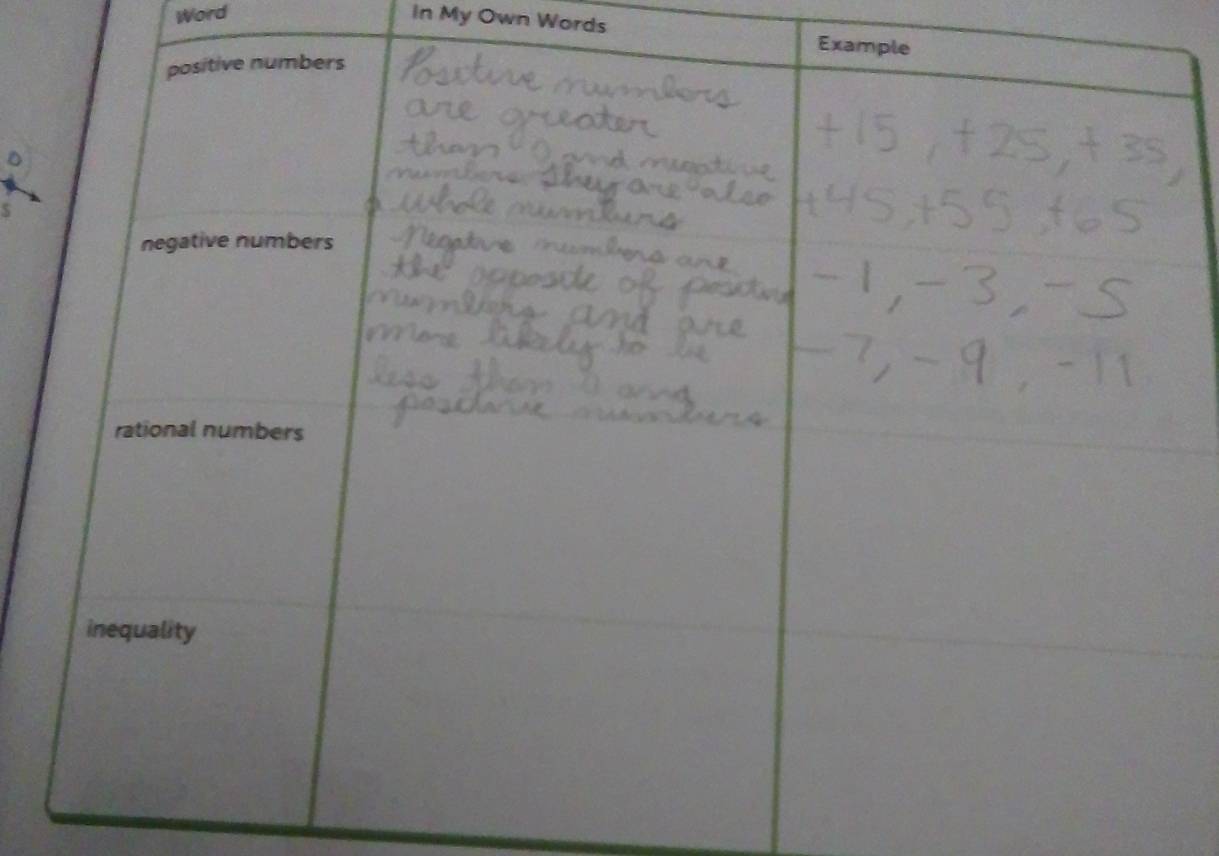 Word In My Own Words Example
positive numbers
Positive numbers
are greater
than 0 and negative
numbers they are also
whole numbers
+15, +25, +35,
+45, +55, +65
negative numbers
Negative numbers are
the opposite of positive
numbers and are
more likely to be
less than 0 and
positive numbers
-1, -3, -5
-7, -9, -11
rational numbers
inequality
0
5